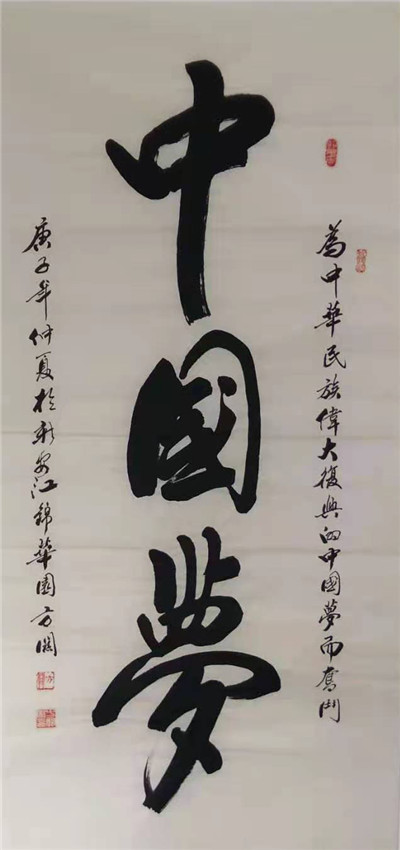 為中華民族偉大復興的中國夢而奮鬥
中國夢
庚子年仲夏於新安江錦華園方闊